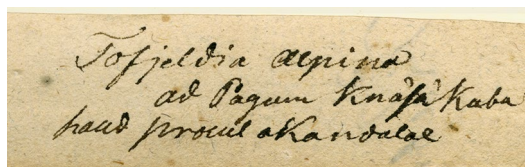 Tofjeldia alpina
ad Pagum Knäsä Kaba
haud procul a Kandalae